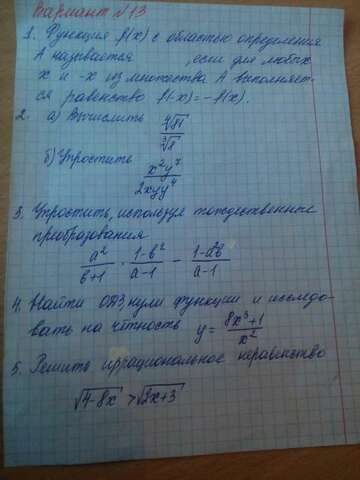 Вариант №13
1. Функция f(x) с областью определения
А называется , если для любых
x и -x из множества А выполняет-
ся равенство f(-x)=-f(x).
2. а) Вычислить ∜81 / ∛8
б) Упростить x²y⁷ / 2xyy⁴
3. Упростить, используя тождественные
преобразования
a²/(b+1) · (1-b²)/(a-1) - (1-a²b)/(a-1)
4. Найти ОДЗ, нули функции и исследо-
вать на чётность y = (8x³+1)/x²
5. Решить иррациональное неравенство
√4-8x > √2x+3